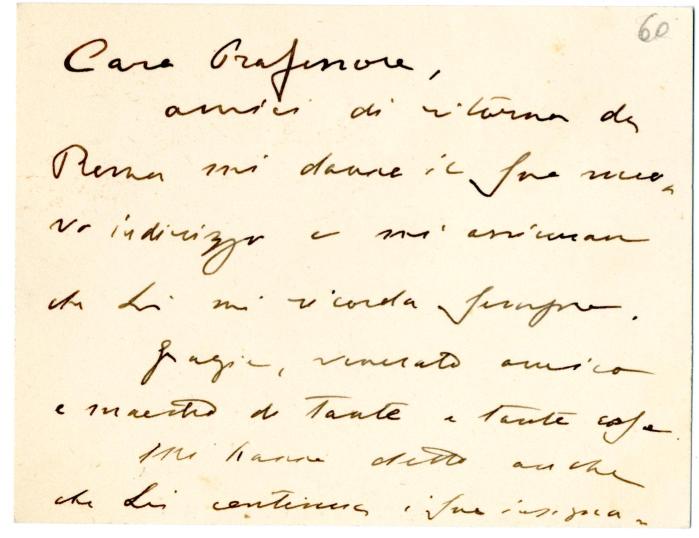 60
Caro Professore,
amici di ritorno da
Roma mi danno il Suo nuo-
vo indirizzo e mi assicurano
che Lei mi ricorda sempre.
Grazie, venerato amico
e maestro di tante e tante cose
Mi hanno detto anche
che Lei continua i Suoi insegna-